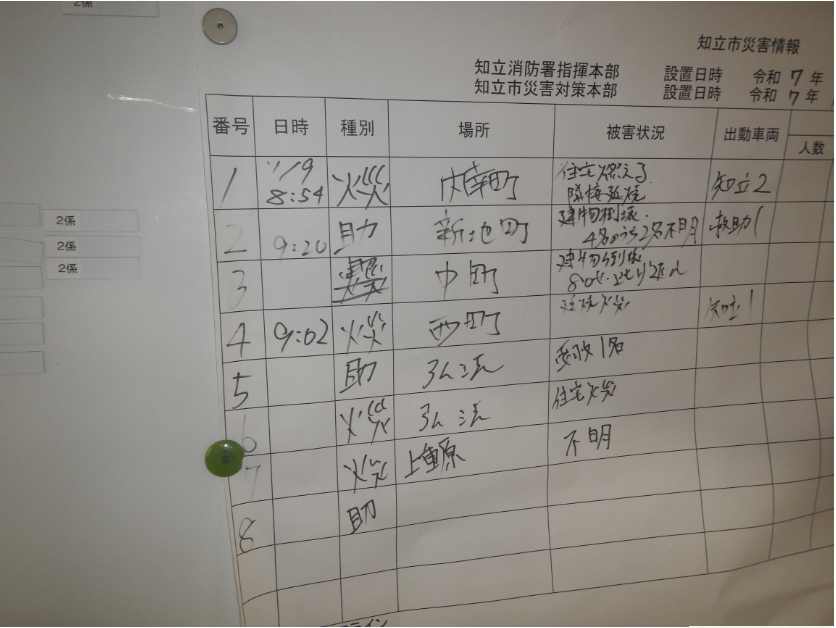 2係
知立市災害情報
知立消防署指揮本部 設置日時 令和 7 年
知立市災害対策本部 設置日時 令和 7 年
番号 日時 種別 場所 被害状況 出動車両 人数
1 1/19 8:54 火災 内幸町 住宅燃える 隣接延焼 知立2
2 9:20 助 新地町 建物倒壊 4名のうち2名不明 救助1
3 中町 建物倒壊 80代
4 9:02 火災 西町 火災 知立1
5 助 弘法 1名
6 火災 弘法 住宅火災
7 火災 上重原 不明
8 助
2係
2係
2係